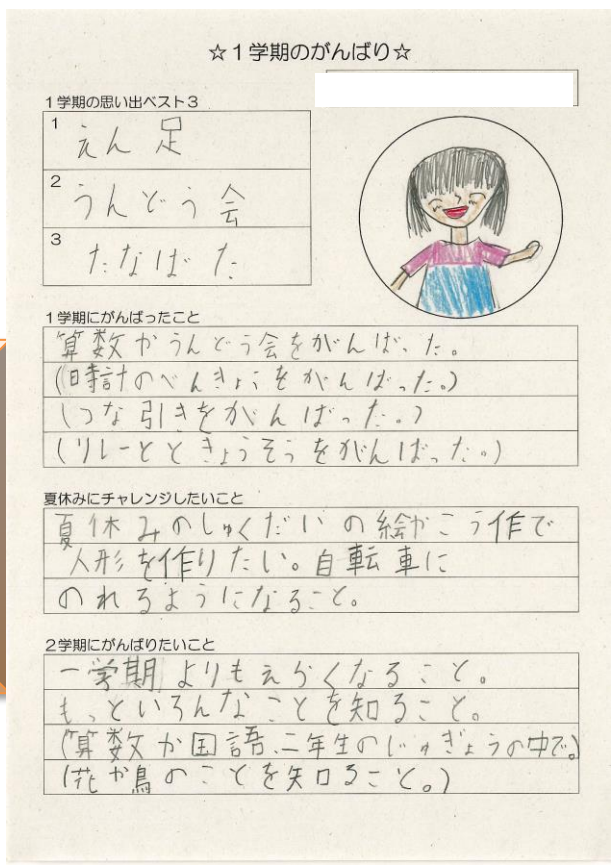 ☆1学期のがんばり☆
1学期の思い出ベスト3
1 えん足
2 うんどう会
3 たなばた
1学期にがんばったこと
算数かうんどう会をがんばった。
(時計のべんきょうをがんばった。)
(つな引きをがんばった。)
(リレーとときょうそうをがんばった。)
夏休みにチャレンジしたいこと
夏休みのしゅくだいの絵かこう作で
人形を作りたい。自転車に
のれるようになること。
2学期にがんばりたいこと
一学期よりもえらくなること。
もっといろんなことを知ること。
(算数か国語、二年生のじゅぎょうの中で。)
(花か鳥のことを知ること。)